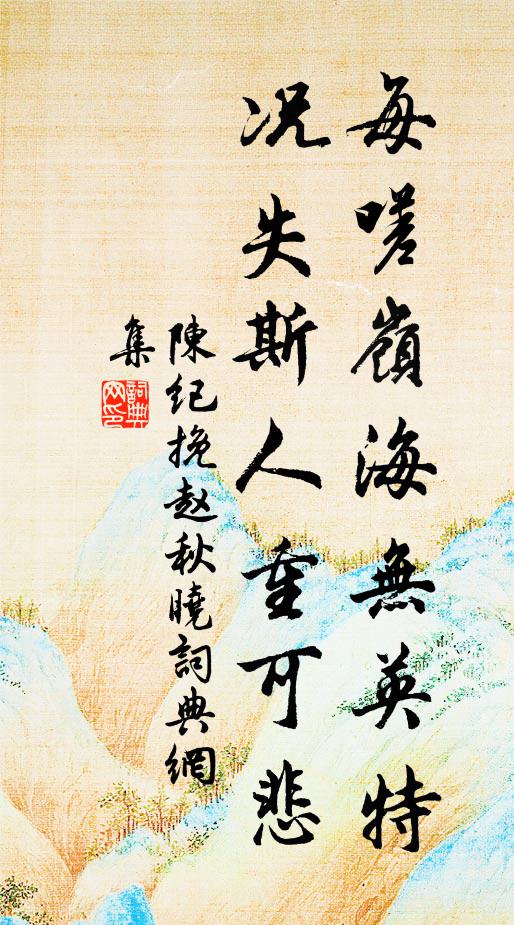 每嗟嶺海無英特
况失斯人重可悲
陳纪挽赵秋曉詞典網
集
詞典
网印